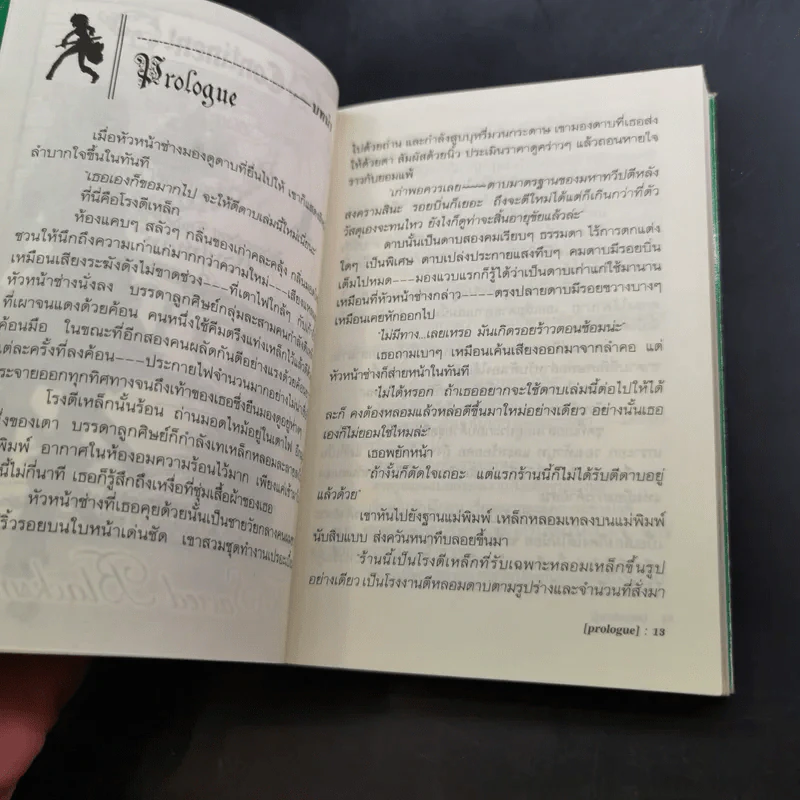 Prologue
บทนำ
เมื่อหัวหน้าช่างมองดูดาบที่ยื่นไปให้ เขาก็แสดง
ลำบากใจขึ้นในทันที
'เธอเองก็ขอมากไป จะให้ตีดาบเล่มนี้ใหม่เนี่ยนะ'
ที่นี่คือโรงตีเหล็ก
ห้องแคบๆ สลัวๆ กลิ่นของเก่าคละคลุ้ง กลิ่น
ชวนให้นึกถึงความเก่าแก่มากกว่าความใหม่---เสียง
เหมือนเสียงระฆังดังไม่ขาดช่วง---ที่เตาไฟใกล้ๆ กับ
หัวหน้าช่างนั่งลง บรรดาลูกศิษย์กลุ่มละสามคนกำลัง
ที่เผาจนแดงด้วยค้อน คนหนึ่งใช้คีมตรึงแท่งเหล็กไว้แล้ว
ค้อนมือ ในขณะที่อีกสองคนผลัดกันตีอย่างแรงด้วยค้อน
แต่ละครั้งที่ลงค้อน---ประกายไฟจำนวนมากอย่างไม่น่า
กระจายออกทุกทิศทางจนถึงเท้าของเธอซึ่งยืนมองดูอยู่
โรงตีเหล็กนั้นร้อน ถ่านมอดไหม้อยู่ในเตาไฟ
ของเตา บรรดาลูกศิษย์ก็กำลังเทเหล็กหลอมละลาย
พิมพ์ อากาศในห้องอมความร้อนไว้มาก เพียงแค่เข้ามา
นี้ไม่กี่นาที เธอก็รู้สึกถึงเหงื่อที่ชุ่มเสื้อผ้าของเธอ
หัวหน้าช่างที่เธอคุยด้วยนั้นเป็นชายวัยกลางคน
ริ้วรอยบนใบหน้าเด่นชัด เขาสวมชุดทำงานเปรอะเปื้อน
ไปด้วยถ่าน และกำลังสูบบุหรี่มวนกระดาษ เขามองดาบที่เธอส่ง
ให้ด้วยตา สัมผัสด้วยนิ้ว ประเมินราคาดูคร่าวๆ แล้วถอนหายใจ
ราวกับยอมแพ้
'เก่าพอควรเลย---ดาบมาตรฐานของมหาทวีปตีหลัง
สงครามสินะ รอยบิ่นก็เยอะ ถึงจะตีใหม่ได้แต่ก็เกินกว่าที่ตัว
วัสดุเองจะทนไหว ยังไงก็ดูท่าจะสิ้นอายุขัยแล้วล่ะ'
ดาบนั้นเป็นดาบสองคมเรียบๆ ธรรมดา ไร้การตกแต่ง
ใดๆ เป็นพิเศษ ดาบเปล่งประกายแสงทึบๆ คมดาบมีรอยบิ่น
เต็มไปหมด---มองแวบแรกก็รู้ได้ว่าเป็นดาบเก่าแก่ใช้มานาน
เหมือนที่หัวหน้าช่างกล่าว---ตรงปลายดาบมีรอยขวางบางๆ
เหมือนเคยหักออกไป
'ไม่มีทาง...เลยเหรอ มันเกิดรอยร้าวตอนซ้อมน่ะ'
เธอถามเบาๆ เหมือนเค้นเสียงออกมาจากลำคอ แต่
หัวหน้าช่างก็ส่ายหน้าในทันที
'ไม่ได้หรอก ถ้าเธออยากจะใช้ดาบเล่มนี้ต่อไปให้ได้
ละก็ คงต้องหลอมแล้วหล่อตีขึ้นมาใหม่อย่างเดียว อย่างนั้นเธอ
เองก็ไม่ยอมใช่ไหมล่ะ'
เธอพยักหน้า
'ถ้างั้นก็ตัดใจเถอะ แต่แรกร้านนี้ก็ไม่ได้รับตีดาบอยู่
แล้วด้วย'
เขาหันไปยังฐานแม่พิมพ์ เหล็กหลอมเทลงบนแม่พิมพ์
นับสิบแบบ ส่งควันหนาทึบลอยขึ้นมา
'ร้านนี้เป็นโรงตีเหล็กที่รับเฉพาะหลอมเหล็กขึ้นรูป
อย่างเดียว เป็นโรงงานตีหลอมดาบตามรูปร่างและจำนวนที่สั่งมา
[prologue] : 13